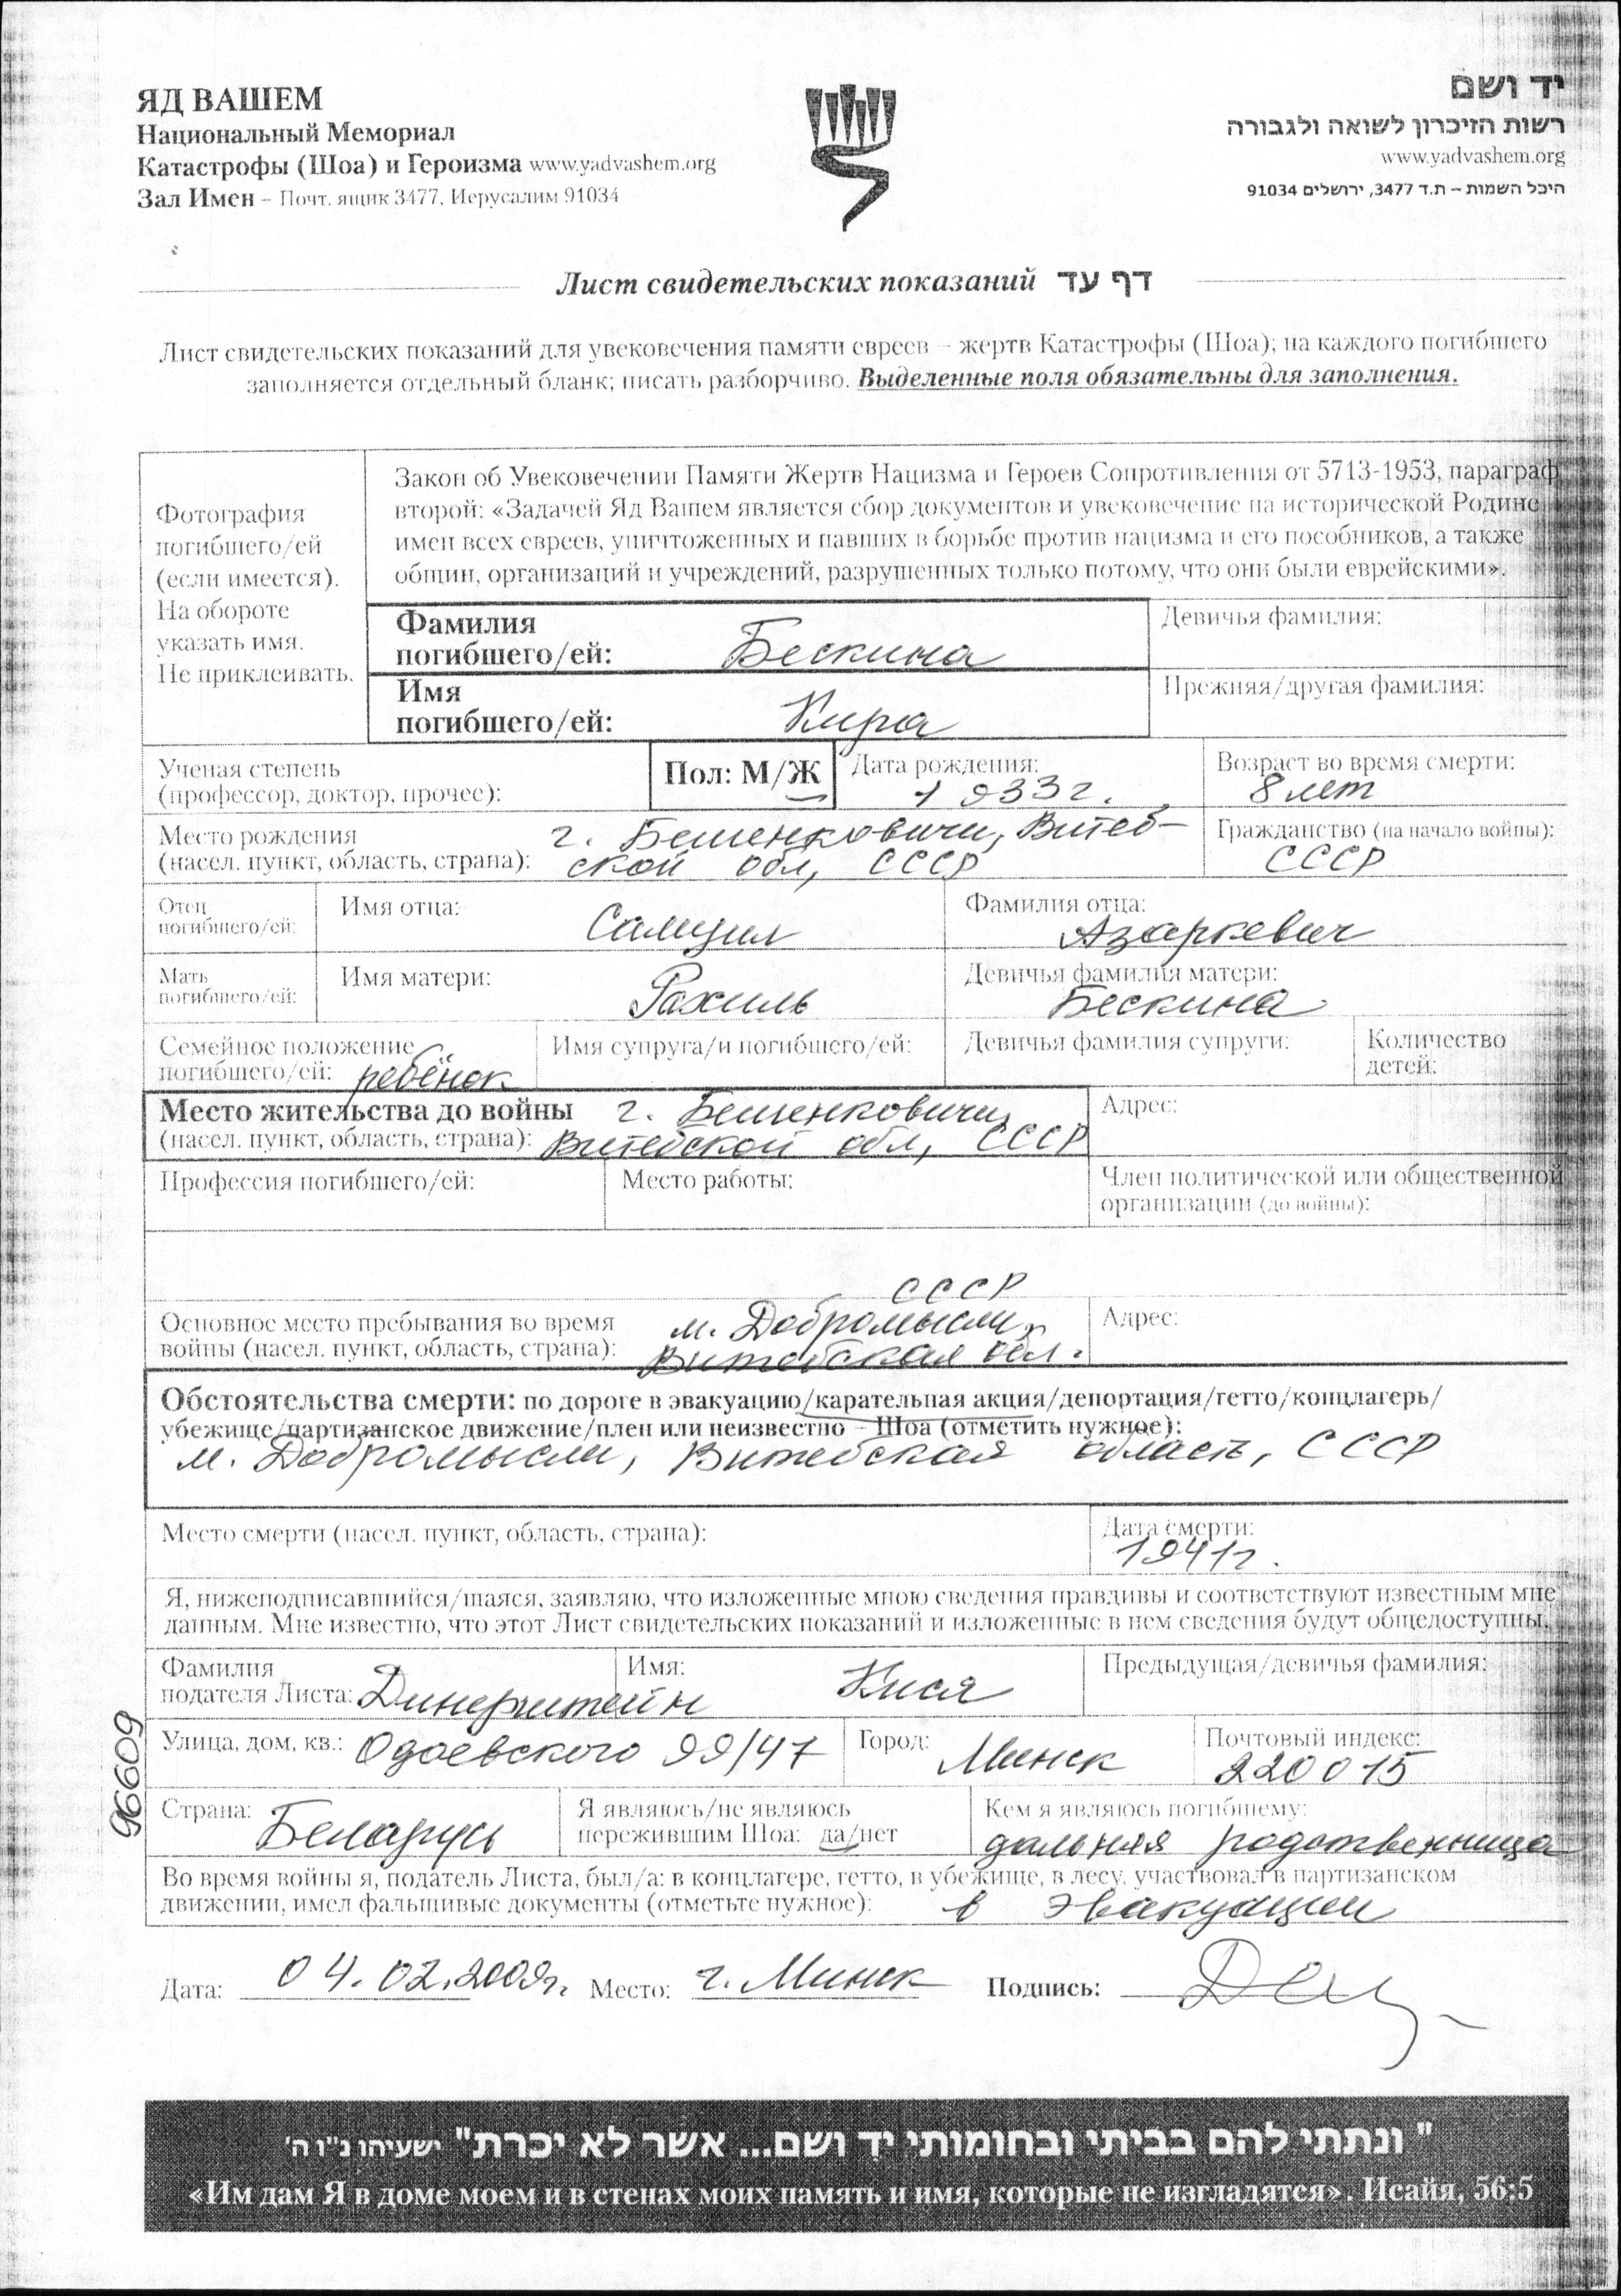 ЯД ВАШЕМ
Национальный Мемориал
Катастрофы (Шоа) и Героизма www.yadvashem.org
Зал Имен – Почт. ящик 3477, Иерусалим 91034
יד ושם
רשות הזיכרון לשואה ולגבורה
www.yadvashem.org
היכל השמות – ת.ד 3477, ירושלים 91034
Лист свидетельских показаний דף עד
Лист свидетельских показаний для увековечения памяти евреев – жертв Катастрофы (Шоа); на каждого погибшего
заполняется отдельный бланк; писать разборчиво. Выделенные поля обязательны для заполнения.
Фотография
погибшего/ей
(если имеется).
На обороте
указать имя.
Не приклеивать.
Закон об Увековечении Памяти Жертв Нацизма и Героев Сопротивления от 5713-1953, параграф
второй: «Задачей Яд Вашем является сбор документов и увековечение на исторической Родине
имен всех евреев, уничтоженных и павших в борьбе против нацизма и его пособников, а также
общин, организаций и учреждений, разрушенных только потому, что они были еврейскими».
Фамилия
погибшего/ей: Бескина
Девичья фамилия:
Имя
погибшего/ей: Кира
Прежняя/другая фамилия:
Ученая степень
(профессор, доктор, прочее):
Пол: М/Ж
Дата рождения:
1933г.
Возраст во время смерти:
8 лет
Место рождения г. Бешенковичи, Витеб-
(насел. пункт, область, страна): ской обл, СССР
Гражданство (на начало войны):
СССР
Отец
погибшего/ей:
Имя отца:
Самуил
Фамилия отца:
Азаркевич
Мать
погибшего/ей:
Имя матери:
Рахиль
Девичья фамилия матери:
Бескина
Семейное положение
погибшего/ей: ребёнок
Имя супруга/и погибшего/ей:
Девичья фамилия супруги:
Количество
детей:
Место жительства до войны г. Бешенковичи,
(насел. пункт, область, страна): Витебской обл, СССР
Адрес:
Профессия погибшего/ей:
Место работы:
Член политической или общественной
организации (до войны):
СССР
Основное место пребывания во время м. Добромысли,
войны (насел. пункт, область, страна): Витебская обл.
Адрес:
Обстоятельства смерти: по дороге в эвакуацию/карательная акция/депортация/гетто/концлагерь/
убежище/партизанское движение/плен или неизвестно – Шоа (отметить нужное):
м. Добромысли, Витебская область, СССР
Место смерти (насел. пункт, область, страна):
Дата смерти:
1941г.
Я, нижеподписавшийся/шаяся, заявляю, что изложенные мною сведения правдивы и соответствуют известным мне
данным. Мне известно, что этот Лист свидетельских показаний и изложенные в нем сведения будут общедоступны.
Фамилия
подателя Листа: Динерштейн
Имя: Кися
Предыдущая/девичья фамилия:
Улица, дом, кв.: Одоевского 99/47
Город: Минск
Почтовый индекс:
220015
Страна: Беларусь
Я являюсь/не являюсь
пережившим Шоа: да/нет
Кем я являюсь погибшему:
дальняя родственница
Во время войны я, податель Листа, был/а: в концлагере, гетто, в убежище, в лесу, участвовал в партизанском
движении, имел фальшивые документы (отметьте нужное): в эвакуации
96609
Дата: 04.02.2009г. Место: г. Минск Подпись:
" ונתתי להם בביתי ובחומותי יד ושם... אשר לא יכרת" ישעיהו נ"ו ה'
«Им дам Я в доме моем и в стенах моих память и имя, которые не изгладятся». Исайя, 56:5